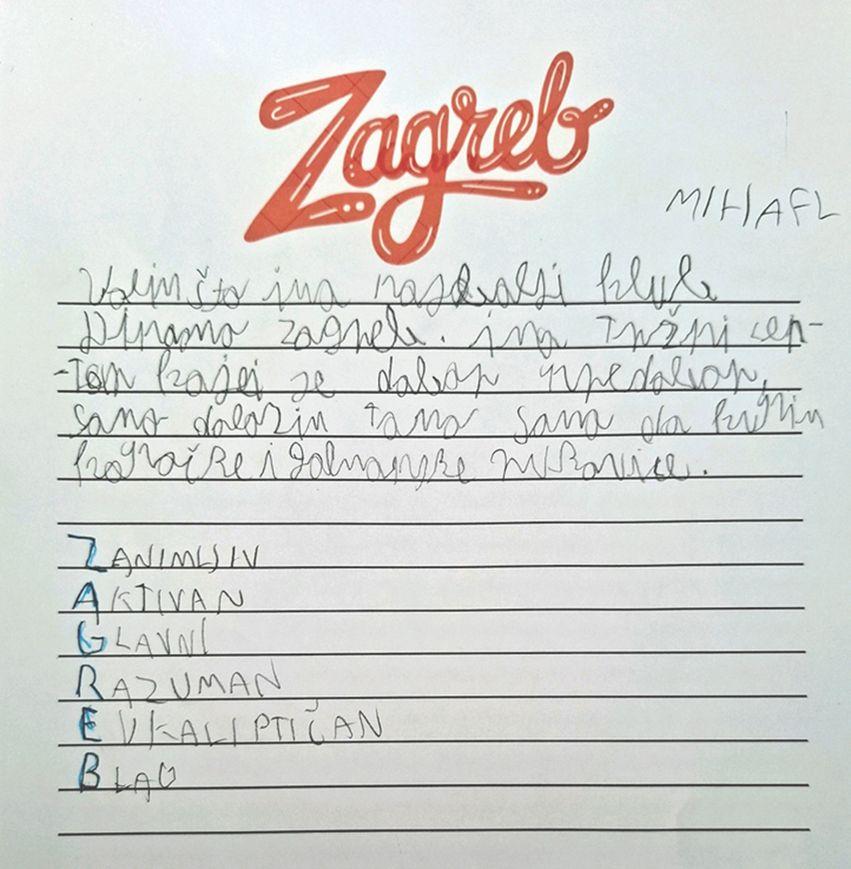 Zagreb
MIHAEL
Volim što ima najbolji klub
Dinamo Zagreb. ima Tržni cen-
-Tar koji je dobar
samo dolazim tamo samo da kupim
kopačke i golmanske rukavice.
ZANIMLJIV
AKTIVAN
GLAVNI
RAZUMAN
EVKALIPTIČAN
BLAG